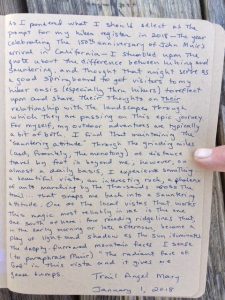 As I pondered what I should select as the
prompt for my hiker register in 2018 - the year
celebrating the 150th anniversary of John Muir's
arrival in California - I stumbled upon the
quote about the difference between hiking and
sauntering, and thought that might serve as
a good springboard to get visitors to my
hiker oasis (especially thru hikers) to reflect
upon and share their thoughts on their
relationship with the landscapes through
which they are passing on this epic journey.
For myself, my outdoor adventures are typically
a bit of both. I find that maintaining a
"sauntering attitude" through the grinding miles
(and, frankly, the monotony) of distance
travel by foot is beyond me; however, on
almost a daily basis, I experience something
a beautiful vista, an interesting rock, a phalanx
of ants marching by the thousands across the
trail - that snaps me back into a sauntering
attitude. One of the local vistas that works
this magic most reliably on me is the one
south of here: far ridgeline that,
in the early morning or late afternoon, become a
play of light and shadow as the sun illuminates
the deeply-furrowed mountain faces. I sense
(to paraphrase Muir) "the radiant face of
God" in this vista and it gives me
goose bumps.
Trail Angel Mary
January 1, 2018